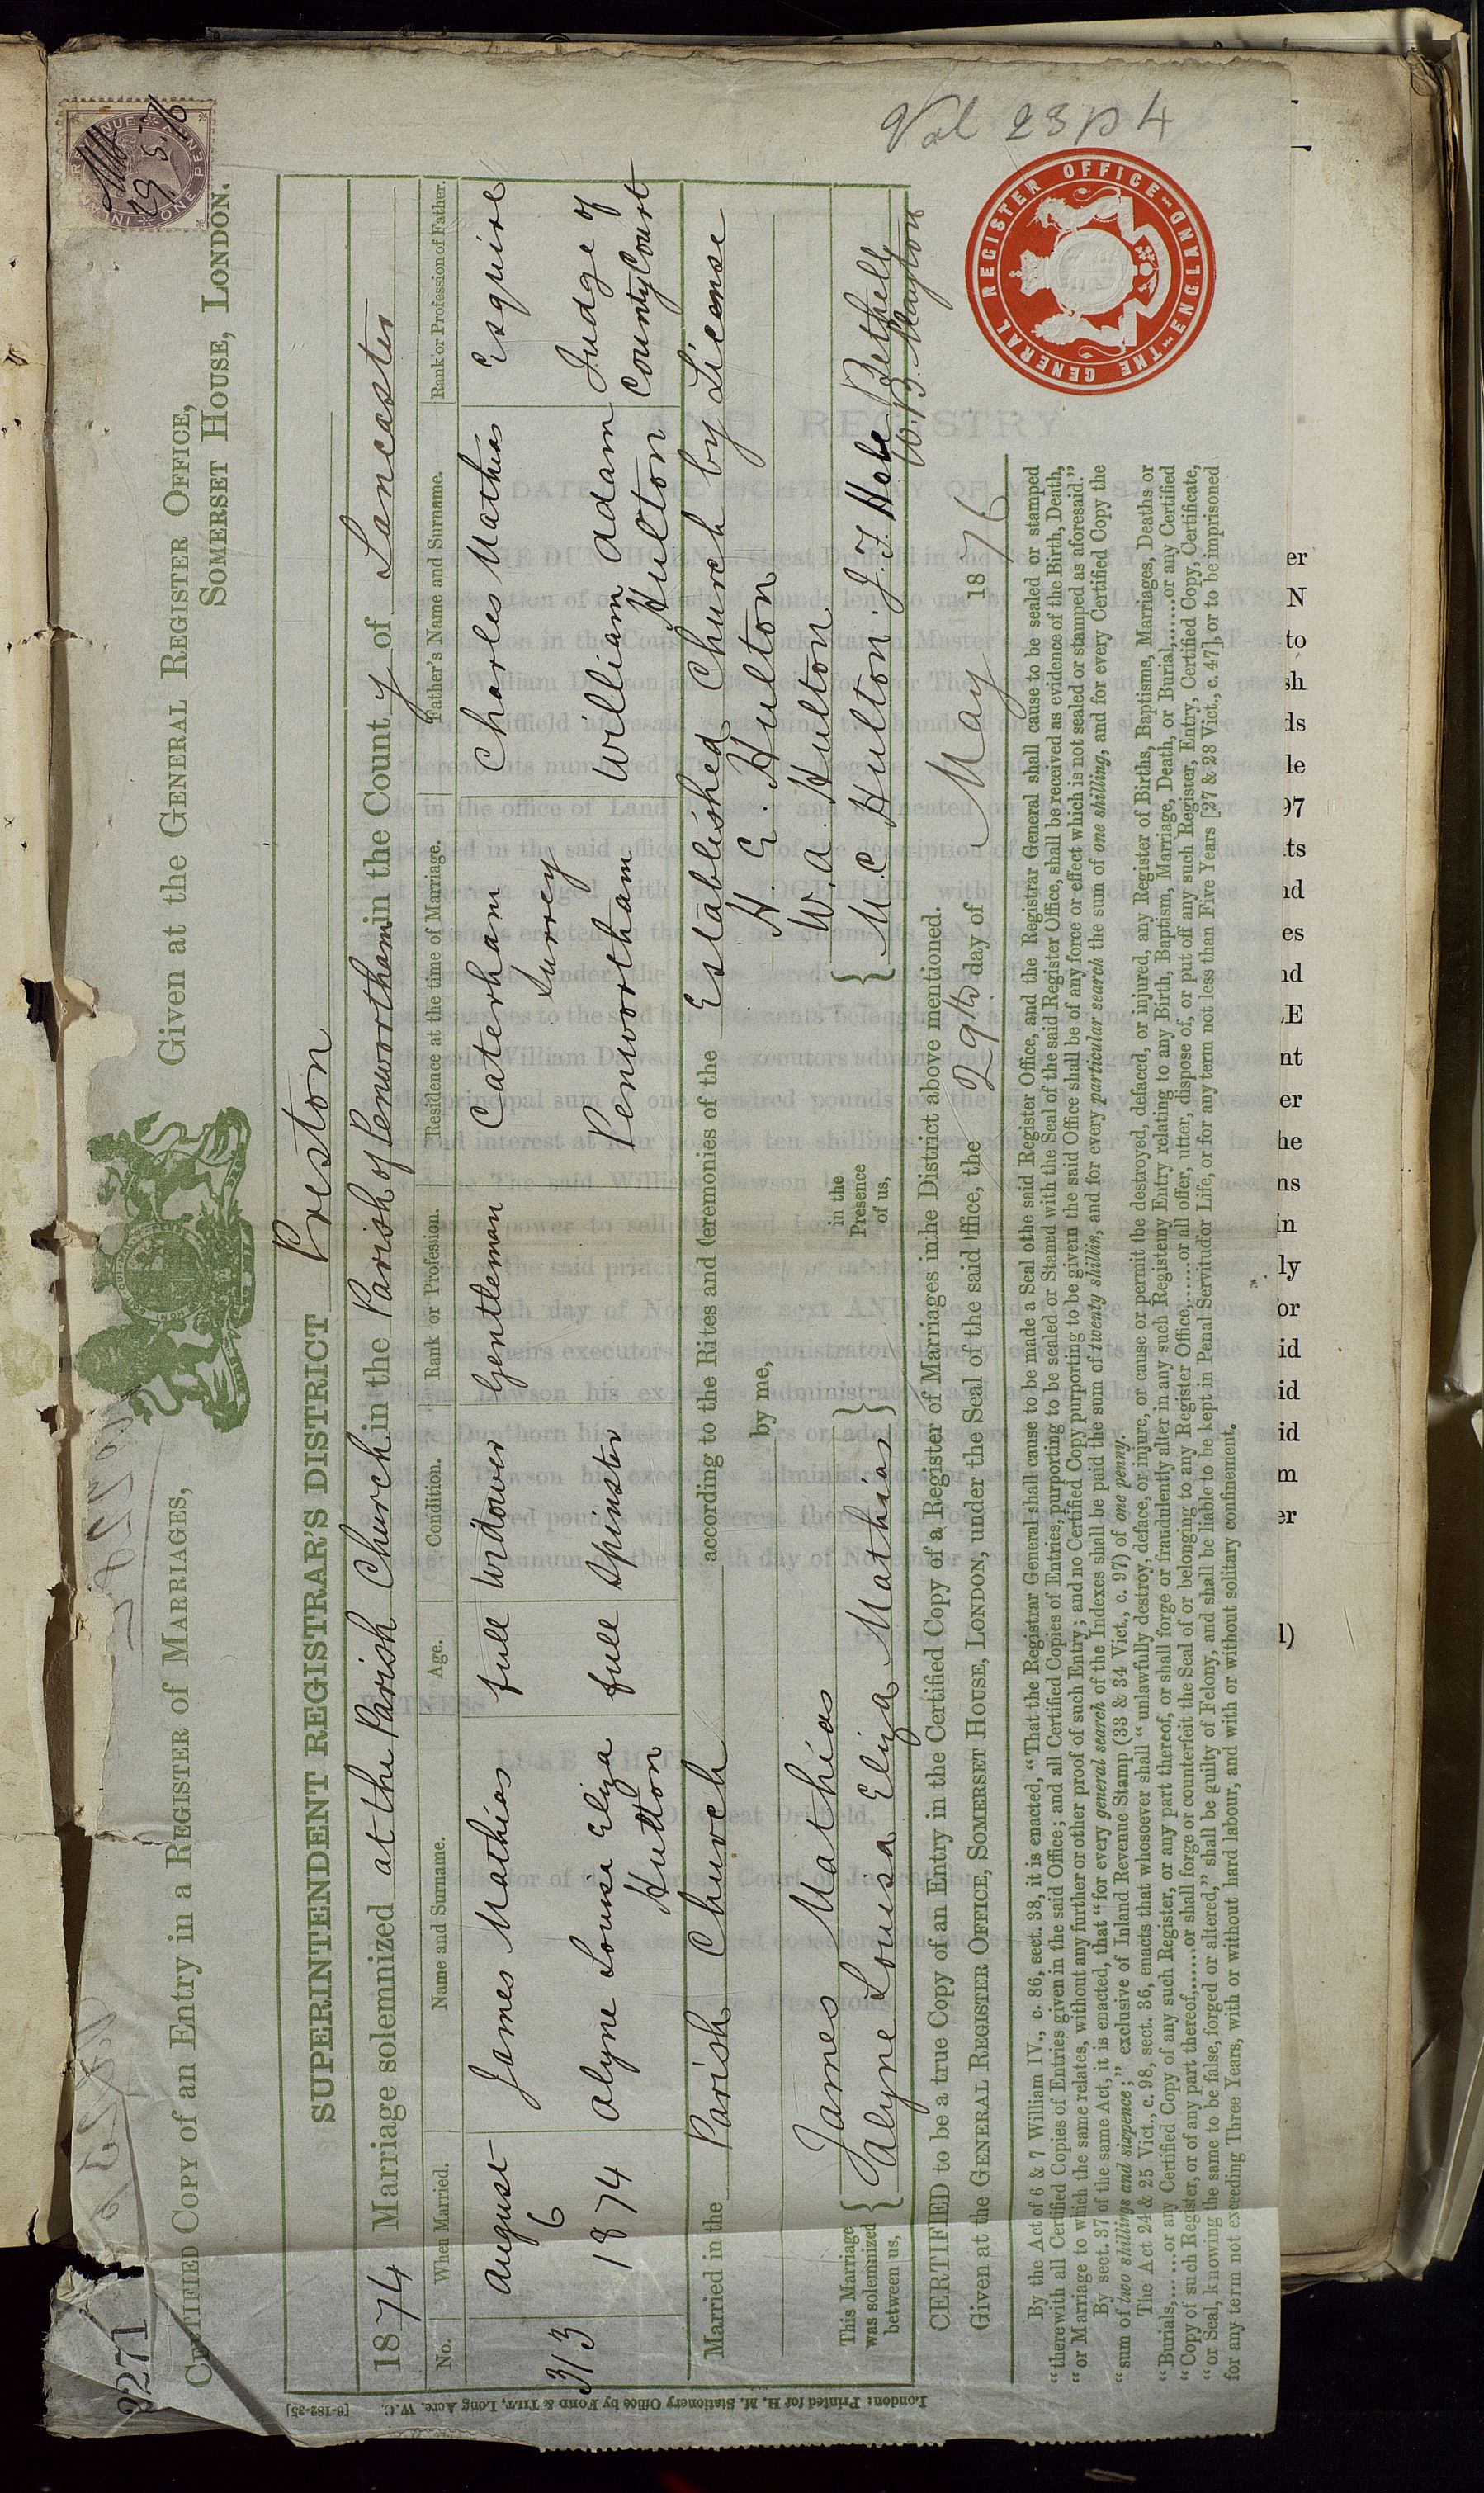 2271
CERTIFIED COPY of an Entry in a REGISTER of MARRIAGES, Given at the GENERAL REGISTER OFFICE,
SOMERSET HOUSE, LONDON.
INLAND REVENUE ONE PENNY
29 . 5 . 76
SUPERINTENDENT REGISTRAR'S DISTRICT Preston
1874 Marriage solemnized at the Parish Church in the Parish of Penwortham in the County of Lancaster
No. When Married. Name and Surname. Age. Condition. Rank or Profession. Residence at the time of Marriage. Father's Name and Surname. Rank or Profession of Father.
313 August 6 1874 James Mathias full Widower Gentleman Caterham Surrey Charles Mathias Esquire
Alyne Louisa Eliza Hulton full Spinster Penwortham William Adam Hulton Judge of County Court
Married in the Parish Church according to the Rites and Ceremonies of the Established Church by License
by me, H. E. Hulton
This Marriage was solemnized between us, { James Mathias } in the Presence of us, { W. A. Hulton
Alyne Louisa Eliza Mathias M. C. Hulton J. F. Hole Bethell
CERTIFIED to be a true Copy of an Entry in the Certified Copy of a Register of Marriages in the District above mentioned.
Given at the GENERAL REGISTER OFFICE, SOMERSET HOUSE, LONDON, under the Seal of the said Office, the 29th day of May 1876
By the Act of 6 & 7 William IV., c. 86, sect. 38, it is enacted, "That the Registrar General shall cause to be made a Seal of the said Register Office, and the Registrar General shall cause to be sealed or stamped
"therewith all Certified Copies of Entries given in the said Office; and all Certified Copies of Entries, purporting to be sealed or Stamped with the Seal of the said Register Office, shall be received as evidence of the Birth, Death,
"or Marriage to which the same relates, without any further or other proof of such Entry; and no Certified Copy purporting to be given in the said Office shall be of any force or effect which is not sealed or stamped as aforesaid."
By sect. 37 of the same Act, it is enacted, that "for every general search of the Indexes shall be paid the sum of twenty shillings, and for every particular search the sum of one shilling, and for every Certified Copy the
"sum of two shillings and sixpence;" exclusive of Inland Revenue Stamp (33 & 34 Vict., c. 97) of one penny.
The Act 24 & 25 Vict., c. 98, sect. 36, enacts that whosoever shall "unlawfully destroy, deface, or injure, or cause or permit to be destroyed, defaced, or injured, any Register of Births, Baptisms, Marriages, Deaths or
"Burials,......or any Certified Copy of any such Register, or any part thereof, or shall forge or fraudulently alter in any such Register any Entry relating to any Birth, Baptism, Marriage, Death, or Burial,......or any Certified
"Copy of such Register, or of any part thereof,......or shall forge or counterfeit the Seal of or belonging to any Register Office,......or shall offer, utter, dispose of, or put off any such Register, Entry, Certified Copy, Certificate,
"or Seal, knowing the same to be false, forged or altered," shall be guilty of Felony, and shall be liable to be kept in Penal Servitude for Life, or for any term not less than Five Years [27 & 28 Vict., c. 47], or to be imprisoned
for any term not exceeding Three Years, with or without hard labour, and with or without solitary confinement.
THE GENERAL REGISTER OFFICE ENGLAND
Vol 23 p 4
London: Printed for H. M. Stationery Office by FORD & TILT, Long Acre, W.C. [6-182-35]